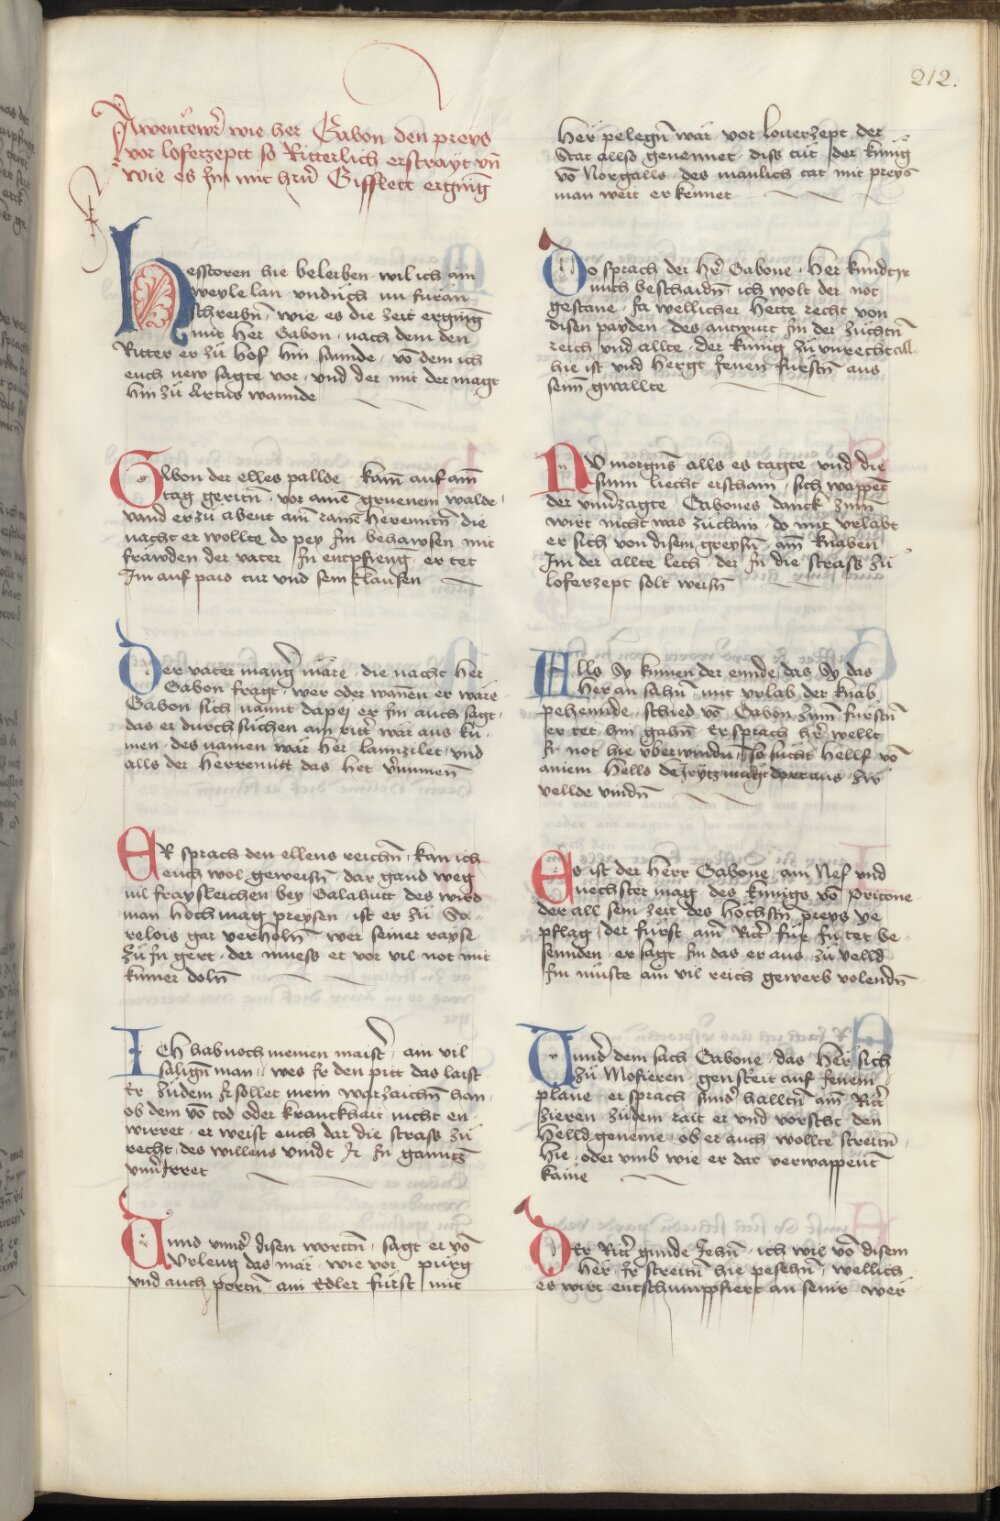 212.
Awentewr wie her Gabon den preys
vor loferzeptt so Ritterlich erstrayt vñ
wie es Im mit hern Gifflett erging
hesstoren hie beleiben wil ich ain
weyle lan vnd üch nu furan
schreibn wie es die zeit erging
mit her Gabon nach dem den
Ritter er zů hof hin sannde võ dem ich
euch new sagte vor vnd der mit der magt
hin zů Artus wannde
Gabon der elles pallde kam auf ain
tag geritn vor ainē gruenem walde
vand er zů abent ain ramē heremitn die
nacht er wollte do pey Im behawsen mit
frawden der vater In entpfieng er tet
Im auf paid tür vnd sein klausen
Der vater mangͤ märe die nacht her
Gabon fragt wer oder wanen er ware
Gabon sich nannt dapej er Im auch sagt
das er durch süchen ain rittͤ wär aus ku-
men des namen wär her lannzilet vnd
alls der herremitt das het vͤnumen
Er sprach den ellens reichn kan ich
euch wol geweisn dar gand weg
vil fraysleichen bey Galahutt des wird
man hoch mag preysen ist er zů So-
relois gar verholn wer seiner rayse
zů In gert der muess et vor vil not mit
kumer doln
Ich hab noch meinen maistͤ ain vil
salign man wes Ir den pitt das laist
er zudem Ir sollet mein warzaichn han
ob dem võ tod oder kranckhait nicht en-
wirret er weist euch dar die strass zů
recht des willens vindt Ir In gannz
vnuͤirret
Unnd vnndͤ disen worttn sagt er võ
vrleug das mär wie vor purg
vnd auch portn ain Edler fürst mit
her pelegn war vor louerzept der
Stat allso genennet diss tüt der künig
võ Norgalls des manlich tat mit preys
man weit erkennet
Do sprach der hͤr Gabone her kundt ir
mich beschaidn ich wolt der not
gestane Ja wellicher hette recht von
disen payden des antwurt Im der züchtn
reich vnd allte der künig zů vnrecht all
hie ist vnd hergt Jenen fürstn aus
seinn gwallte
Nu morgns alls es tagte vnd die
sunn liecht erschain sich wappet
der vnuͤzagte Gabones danck zum
wirt nicht was zůclain do mit vrlabt
er sich von disem greysn ain knaben
Im der allte lech der In die strass zů
loferzept solt weisn
Alls Sy kumen der ennde das Sy das
her an sahn mit vrlab der knab
pehennde schied võ Gabon zum fürstn
er tet hin gahn Er sprach hͤr wellt
Ir not hie vberwindn so sücht hellf võ
aniem hells der yetz mag dort aus zw
vellde vindn
Es ist der herr Gabone ain Nef vnd
nechster mag des künigs võ Pritone
der all sein zeit des höchstn preys ve
pflag der fürst ain Rittͤ für In tet be-
sennden er sagt Im das er aus zů velld
Im müste ain vil reich gewerb volendn
Unndͤ dem sach Gabone das her sich
zů Mosieren gensteit auf Jenem
plane er sprach sinndͤ halltn ain Rittͤ
zieren zudem rait er vnd vorscht den
helld geneme ob er auch wollte streitn
hie oder vmb wie er dar verwappent
käme
Der Rittͤ gunde Jehn ich wie võ disem
her Ir streitn hie pesehn wellich
es wirt entschumpfiert an seinr wer